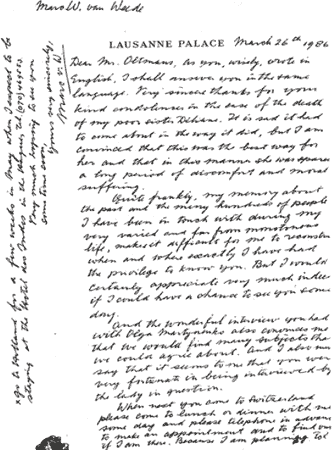 Marc W. van Weede
LAUSANNE PALACE March 26th 1986
Dear Mr. Oltmans, as you, wisely, wrote in
English, I shall answer you in the same
language. Very sincere thanks for your
kind condolences in the case of the death
of my poor sister. It is sad it had
to come about in the way it did, but I am
convinced that this was the best way for
her and that in this manner she was spared
a long period of discomfort and moral
suffering.
Quite frankly, my memory about
the past and the many hundreds of people
I have been in touch with during my
very varied and far from monotonous
life, makes it difficult for me to
when and where exactly I have had
the privilege to know you. But I would
certainly appreciate very much indeed
if I could have a chance to see you some
day.
And the wonderful interview you had
with Olga also convinces me
that we would find many subjects that
we could agree about. And I also must
say that it seems to me that you were
very fortunate in being interviewed by
the lady in question.
When next you come to Switzerland
please come to lunch or dinner with me
some day and please telephone in advance
to make an appointment and to find out
if I am there. Because I am planning to
x go to Holland for a few weeks in May when I expect to be
staying at the Hotel des Indes in the Hague, Tel. (070)
Very much hoping to see you
some time soon,
Yours very sincerely,
Marc v. W.